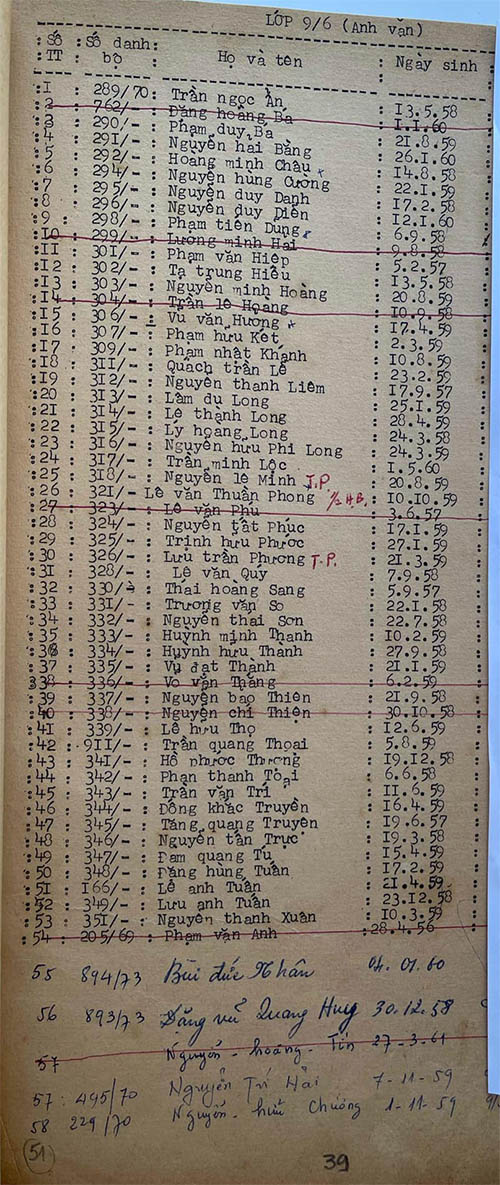 LỚP 9/6 (Anh văn)
Số TT : Số danh bộ : Họ và tên : Ngày sinh
1 : 289/70: Trần ngọc Ẩn : 13.5.58
2 : 762/- : Đặng hoàng Ba : 1.1.60
3 : 290/- : Phạm duy Ba : 21.8.59
4 : 291/- : Nguyễn hai Bằng : 26.1.60
5 : 292/- : Hoang minh Châu : 14.8.58
6 : 294/- : Nguyễn hùng Cường : 22.1.59
7 : 295/- : Nguyễn duy Danh : 17.2.58
8 : 296/- : Nguyễn duy Diên : 12.1.60
9 : 298/- : Phạm tiên Dung : 6.9.58
10 : 299/- : Lương minh Hai : 9.8.58
11 : 301/- : Phạm văn Hiệp : 5.2.57
12 : 302/- : Tạ trung Hiếu : 13.5.58
13 : 303/- : Nguyễn minh Hoàng : 20.8.59
14 : 304/- : Trần lê Hoàng : 10.9.58
15 : 306/- : Vu văn Hương : 17.4.59
16 : 307/- : Phạm hưu Kết : 2.3.59
17 : 309/- : Phạm nhật Khánh : 10.8.59
18 : 311/- : Quách trần Lê : 23.2.59
19 : 312/- : Nguyễn thanh Liêm : 17.9.57
20 : 313/- : Lâm dụ Long : 25.1.59
21 : 314/- : Lê thành Long : 28.4.59
22 : 315/- : Lý hoàng Long : 24.3.58
23 : 316/- : Nguyễn hưu Phi Long : 24.3.59
24 : 317/- : Trần minh Lộc : 1.5.60
25 : 318/- : Nguyễn lê Minh T.P. : 20.8.59
26 : 321/- Lê văn Thuần Phong 1/2 H.B. : 10.10.59
27 : 323/- : Lê văn Phu : 3.6.57
28 : 324/- : Nguyễn tất Phục : 17.1.59
29 : 325/- : Trịnh hưu Phước : 27.1.59
30 : 326/- : Lưu trần Phương T.P. : 21.3.59
31 : 328/- : Lê văn Quy : 7.9.58
32 : 330/- : Thai hoàng Sang : 5.9.57
33 : 331/- : Trương văn So : 22.1.58
34 : 332/- : Nguyễn thai Sơn : 22.7.58
35 : 333/- : Huỳnh minh Thanh : 10.2.59
36 : 334/- : Huỳnh hưu Thành : 27.9.58
37 : 335/- : Vụ đạt Thành : 21.1.59
338 : 336/- : Vo văn Thắng : 6.2.59
39 : 337/- : Nguyễn bao Thiên : 21.9.58
40 : 338/- : Nguyễn chi Thiện : 30.10.58
41 : 339/- : Lê hưu Thọ : 12.6.59
42 : 911/- : Trần quang Thoại : 5.8.59
43 : 341/- : Hồ phước Thương : 19.12.58
44 : 342/- : Phạn thanh Toại : 6.6.58
45 : 343/- : Trần văn Tri : 11.6.59
46 : 344/- : Đông khắc Truyền : 16.4.59
47 : 345/- : Tăng quang Truyên : 19.6.57
48 : 346/- : Nguyễn tân Trực : 19.3.58
49 : 347/- : Đam quang Tú : 15.4.59
50 : 348/- : Đặng hùng Tuấn : 17.2.59
51 : 166/- : Lê anh Tuấn : 21.4.59
52 : 349/- : Lưu anh Tuấn : 23.12.58
53 : 351/- : Nguyễn thanh Xuân : 10.3.59
54 : 205/69 : Phạm văn Anh : 28.4.56
55 894/73 Bùi đức Nhân 04.01.60
56 893/73 Đặng vũ Quang Huy 30.12.58
57 Nguyễn - hoàng - Tin 27-3-61
57 : 495/70 Nguyễn Trí Hải 7-11-59
58 229/70 Nguyễn - hữu Chương 1-11-59
51
39